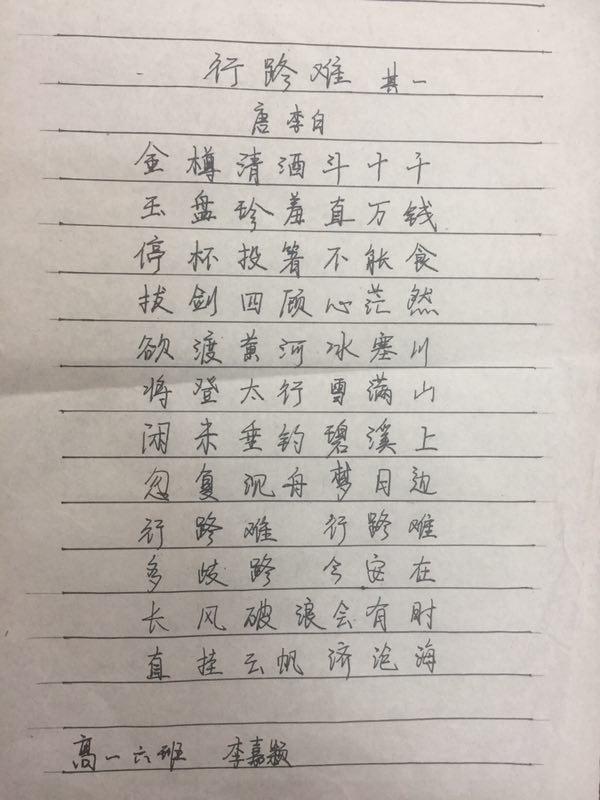 行路难 其一
唐 李白
金樽清酒斗十千
玉盘珍羞直万钱
停杯投箸不能食
拔剑四顾心茫然
欲渡黄河冰塞川
将登太行雪满山
闲来垂钓碧溪上
忽复沉舟梦日边
行路难 行路难
多歧路 今安在
长风破浪会有时
直挂云帆济沧海
高一六班 李嘉颖